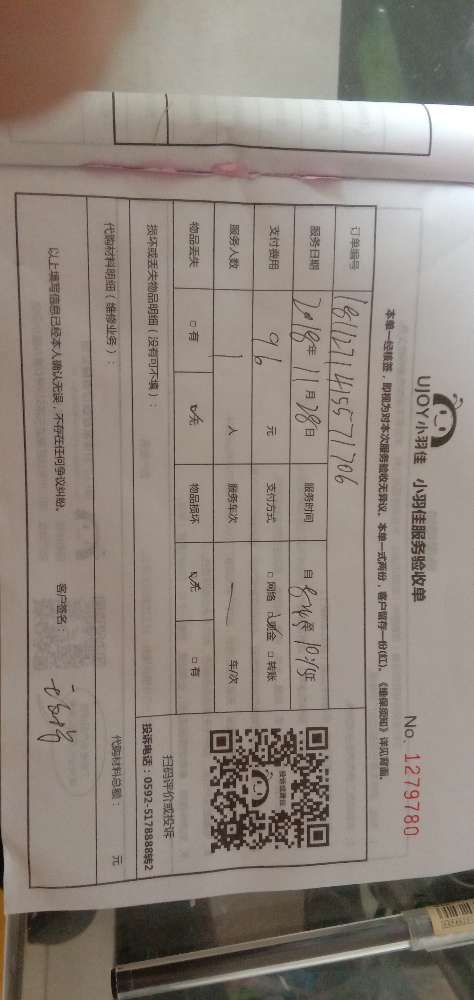 UJOY小羽佳 小羽佳服务验收单
No. 1279780
本单一经核签，即视为对本次服务验收无异议。本单一式两份，客户留存一份(红)。《维保须知》详见背面。
订单编号 1811271415571706
服务日期 2018年 11月28日 服务时间 自 至 10:15
支付费用 96 元 支付方式 □网络 ☑现金 □转账
服务人数 1 人 服务车次 一 车/次
物品丢失 □有 ☑无 物品损坏 ☑无 □有
损坏或丢失物品明细（没有可不填）：
扫码评价或投诉
投诉电话：0592-5178888转2
代购材料明细（维修业务）：
代购材料总额： 元
以上填写信息已经本人确认无误，不存在任何争议纠纷。 客户签名：